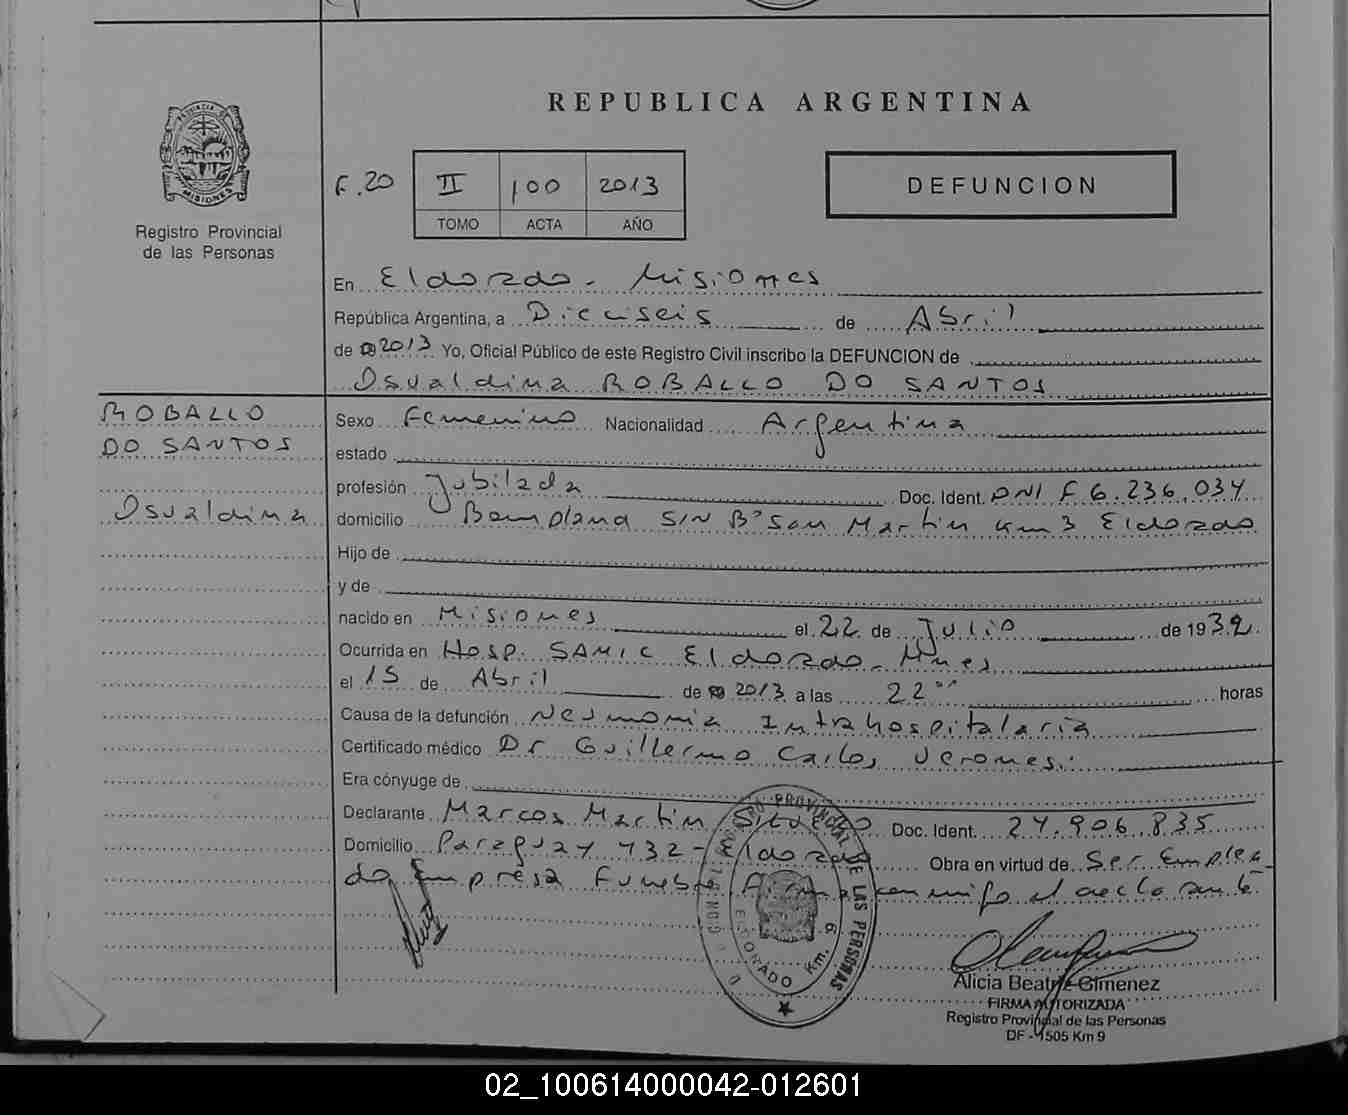 REPUBLICA ARGENTINA
PROVINCIA DE
MISIONES
Registro Provincial
de las Personas
F.20 II 100 2013
TOMO ACTA AÑO
DEFUNCION
En Eldorado - Misiones
República Argentina, a Dieciseis de Abril
de 2013 Yo, Oficial Público de este Registro Civil inscribo la DEFUNCION de
Osvaldina ROBALLO DO SANTOS
ROBALLO
DO SANTOS
Osvaldina
Sexo Femenino Nacionalidad Argentina
estado
profesión Jubilada Doc. Ident. DNI F 6.236.034
domicilio Bompland S/N Bº San Martin Km 3 Eldorado
Hijo de
y de
nacido en Misiones el 22 de Julio de 1932
Ocurrida en Hosp. SAMIC Eldorado - Mnes
el 15 de Abril de 2013 a las 22 horas
Causa de la defunción Neumonia Intrahospitalaria
Certificado médico Dr Guillermo Carlos Veronesi
Era cónyuge de
Declarante Marcos Martin Silvero Doc. Ident. 24.906.835
Domicilio Paraguay 732 - Eldorado Obra en virtud de Ser Emplea
do Empresa Funebre Firma conmigo el declarante
REGISTRO PROVINCIAL DE LAS PERSONAS
ELDORADO Km. 9
Alicia Beatriz Gimenez
FIRMA AUTORIZADA
Registro Provincial de las Personas
DF - 1505 Km 9
02_100614000042-012601